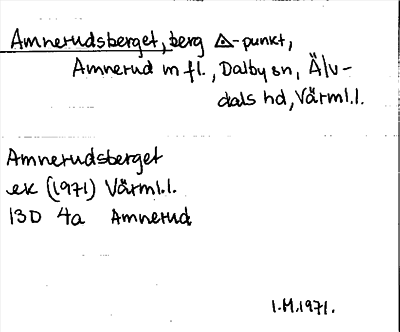 Amnerudsberget, berg △-punkt,
Amnerud m fl., Dalby sn, Älv-
dals hd, Värml.l.
Amnerudsberget
ek (1971) Värml.l.
13D 4a Amnerud
I.M.1971.